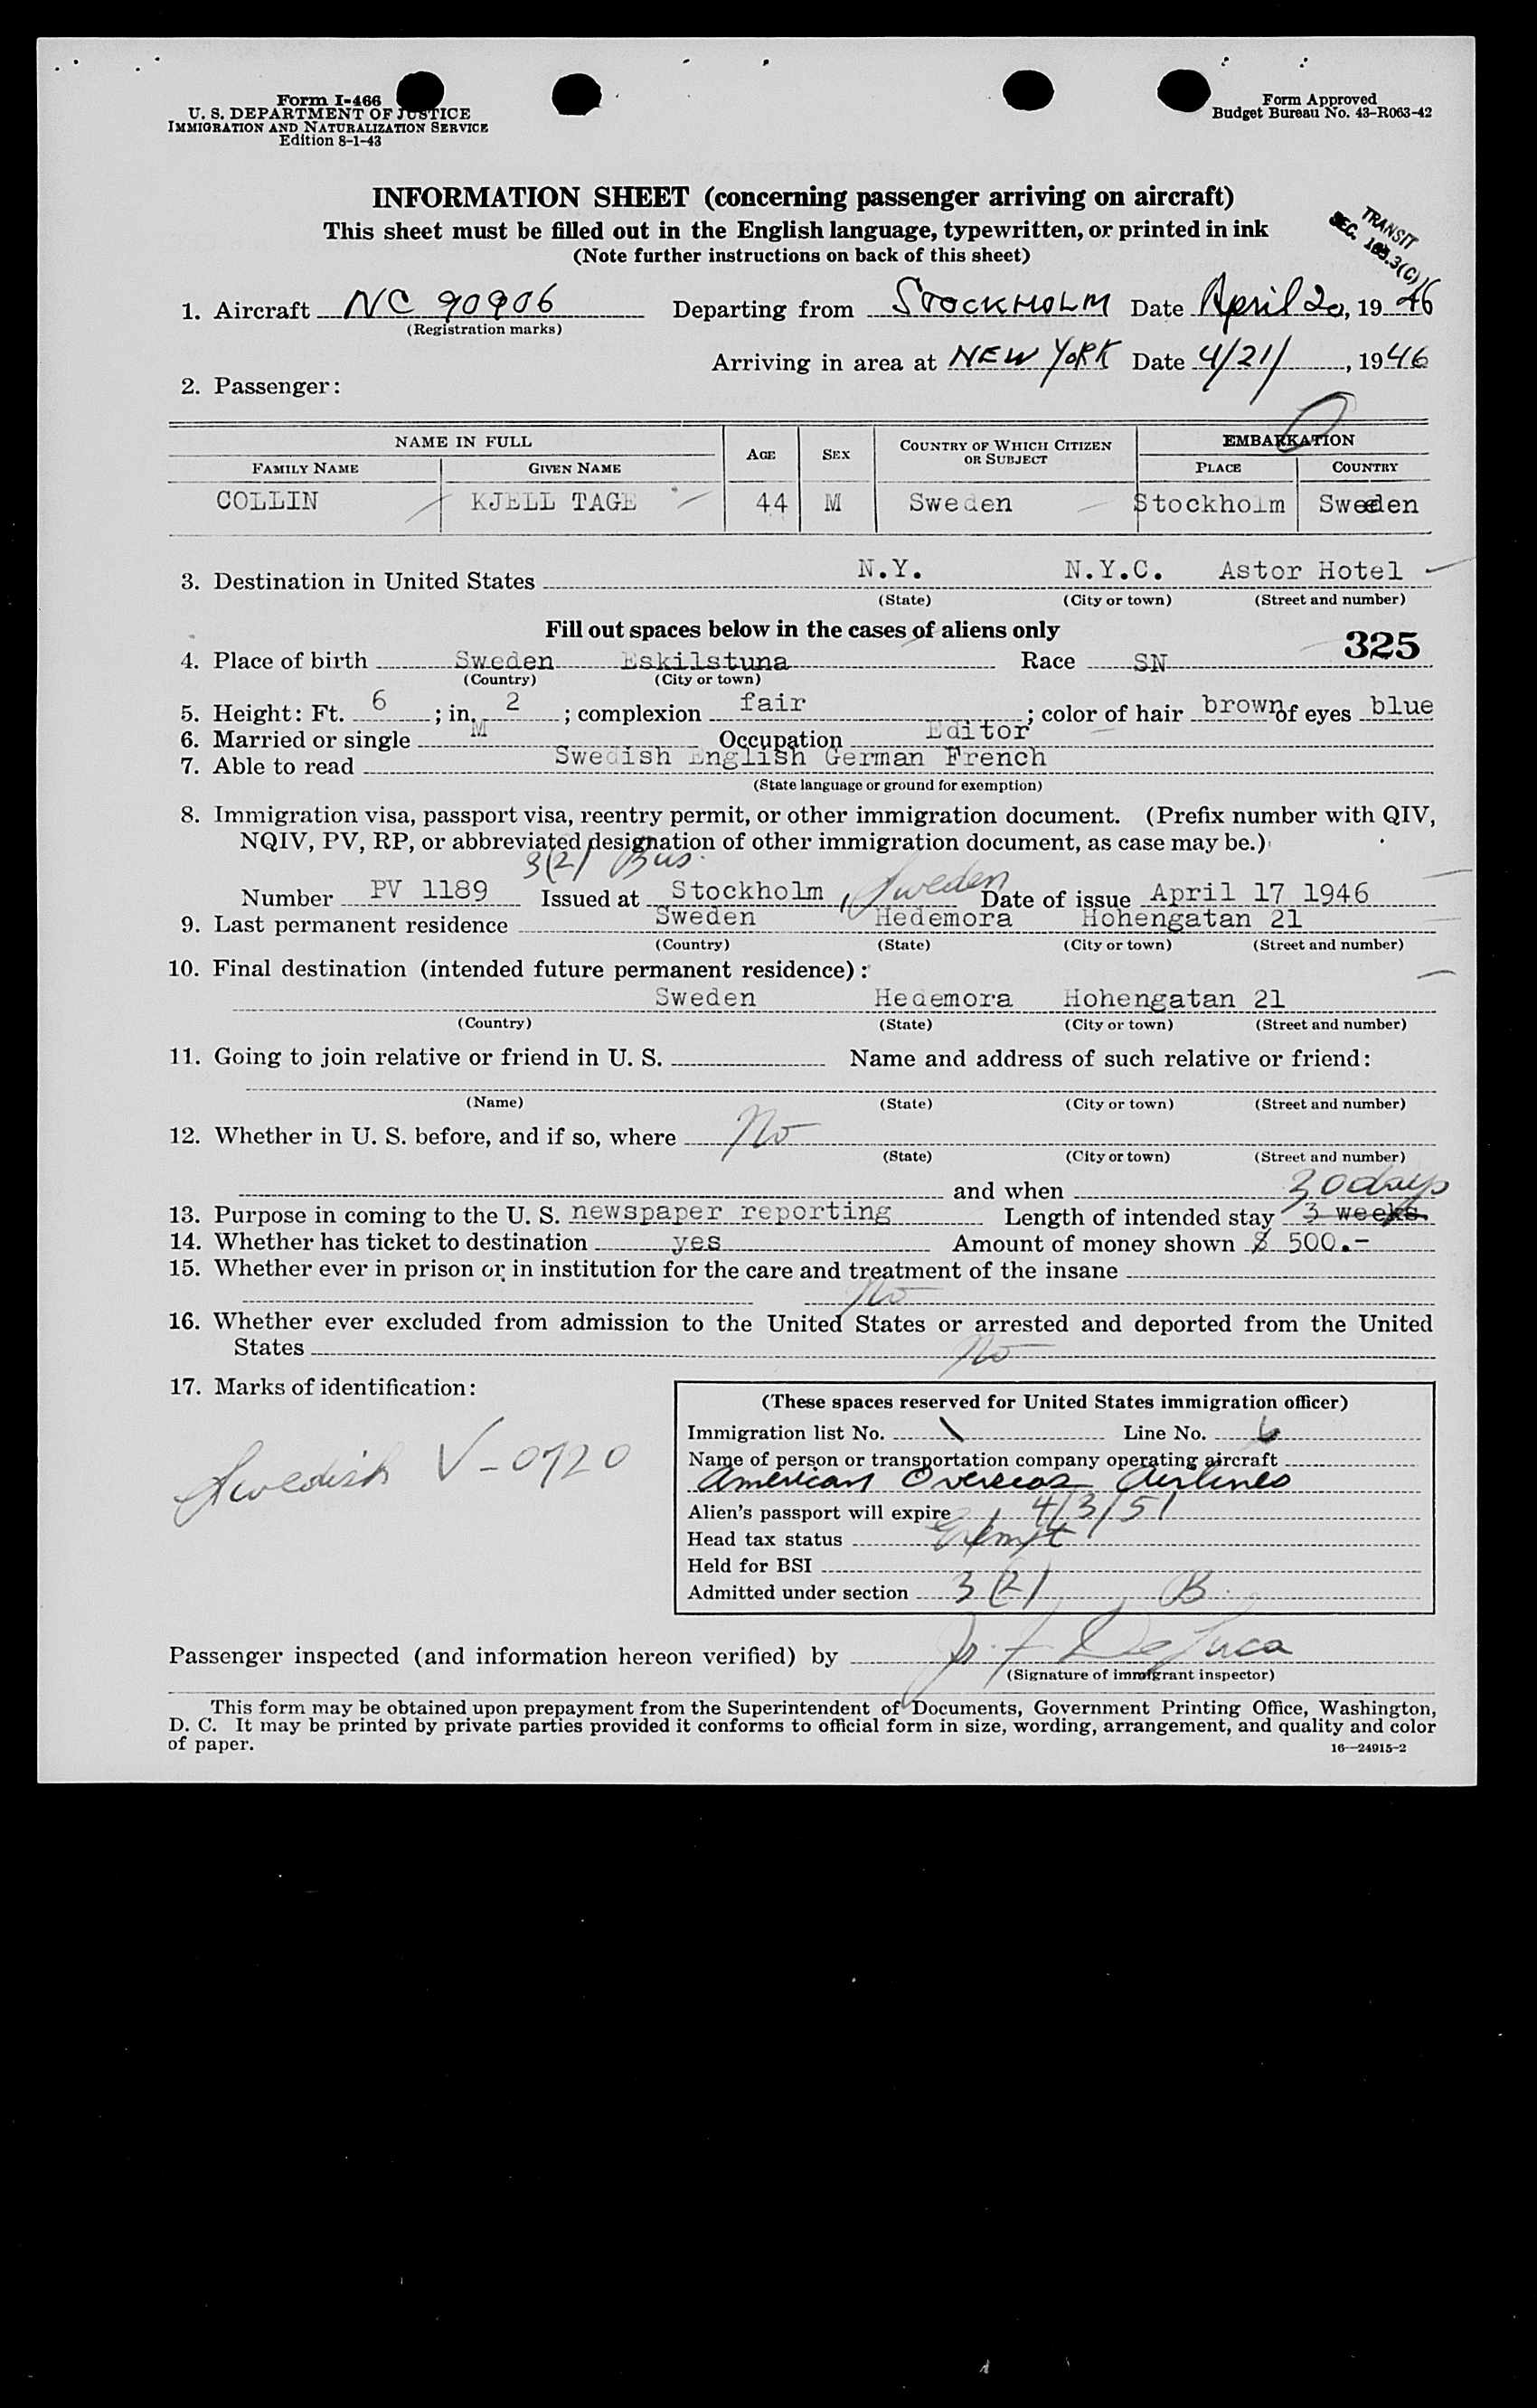 Form I-466
U. S. DEPARTMENT OF JUSTICE
IMMIGRATION AND NATURALIZATION SERVICE
Edition 8-1-43
Form Approved
Budget Bureau No. 43-R063-42
INFORMATION SHEET (concerning passenger arriving on aircraft)
This sheet must be filled out in the English language, typewritten, or printed in ink
(Note further instructions on back of this sheet)
TRANSIT
SEC. 163.3(C)
1. Aircraft NC 90906 Departing from STOCKHOLM Date April 20, 1946
(Registration marks)
Arriving in area at NEW YORK Date 4/21/, 1946
2. Passenger:
NAME IN FULL AGE SEX COUNTRY OF WHICH CITIZEN OR SUBJECT EMBARKATION
FAMILY NAME GIVEN NAME PLACE COUNTRY
COLLIN KJELL TAGE 44 M Sweden Stockholm Sweden
3. Destination in United States N.Y. N.Y.C. Astor Hotel
(State) (City or town) (Street and number)
Fill out spaces below in the cases of aliens only
325
4. Place of birth Sweden Eskilstuna Race SN
(Country) (City or town)
5. Height: Ft. 6; in. 2; complexion fair; color of hair brown of eyes blue
6. Married or single M Occupation Editor
7. Able to read Swedish English German French
(State language or ground for exemption)
8. Immigration visa, passport visa, reentry permit, or other immigration document. (Prefix number with QIV,
NQIV, PV, RP, or abbreviated designation of other immigration document, as case may be.)
3(2) Bus.
Number PV 1189 Issued at Stockholm, Sweden Date of issue April 17 1946
9. Last permanent residence Sweden Hedemora Hohengatan 21
(Country) (State) (City or town) (Street and number)
10. Final destination (intended future permanent residence):
Sweden Hedemora Hohengatan 21
(Country) (State) (City or town) (Street and number)
11. Going to join relative or friend in U. S. Name and address of such relative or friend:
(Name) (State) (City or town) (Street and number)
12. Whether in U. S. before, and if so, where No
(State) (City or town) (Street and number)
and when
30 days
13. Purpose in coming to the U. S. newspaper reporting Length of intended stay 3 weeks.
14. Whether has ticket to destination yes Amount of money shown $ 500.-
15. Whether ever in prison or in institution for the care and treatment of the insane
No
16. Whether ever excluded from admission to the United States or arrested and deported from the United
States No
17. Marks of identification:
Swedish V-0720
(These spaces reserved for United States immigration officer)
Immigration list No. 1 Line No. 6
Name of person or transportation company operating aircraft
American Overseas Airlines
Alien's passport will expire 4/3/51
Head tax status Exempt
Held for BSI
Admitted under section 3(2) B
Passenger inspected (and information hereon verified) by De Luca
(Signature of immigrant inspector)
This form may be obtained upon prepayment from the Superintendent of Documents, Government Printing Office, Washington,
D. C. It may be printed by private parties provided it conforms to official form in size, wording, arrangement, and quality and color
of paper.
16—24915-2